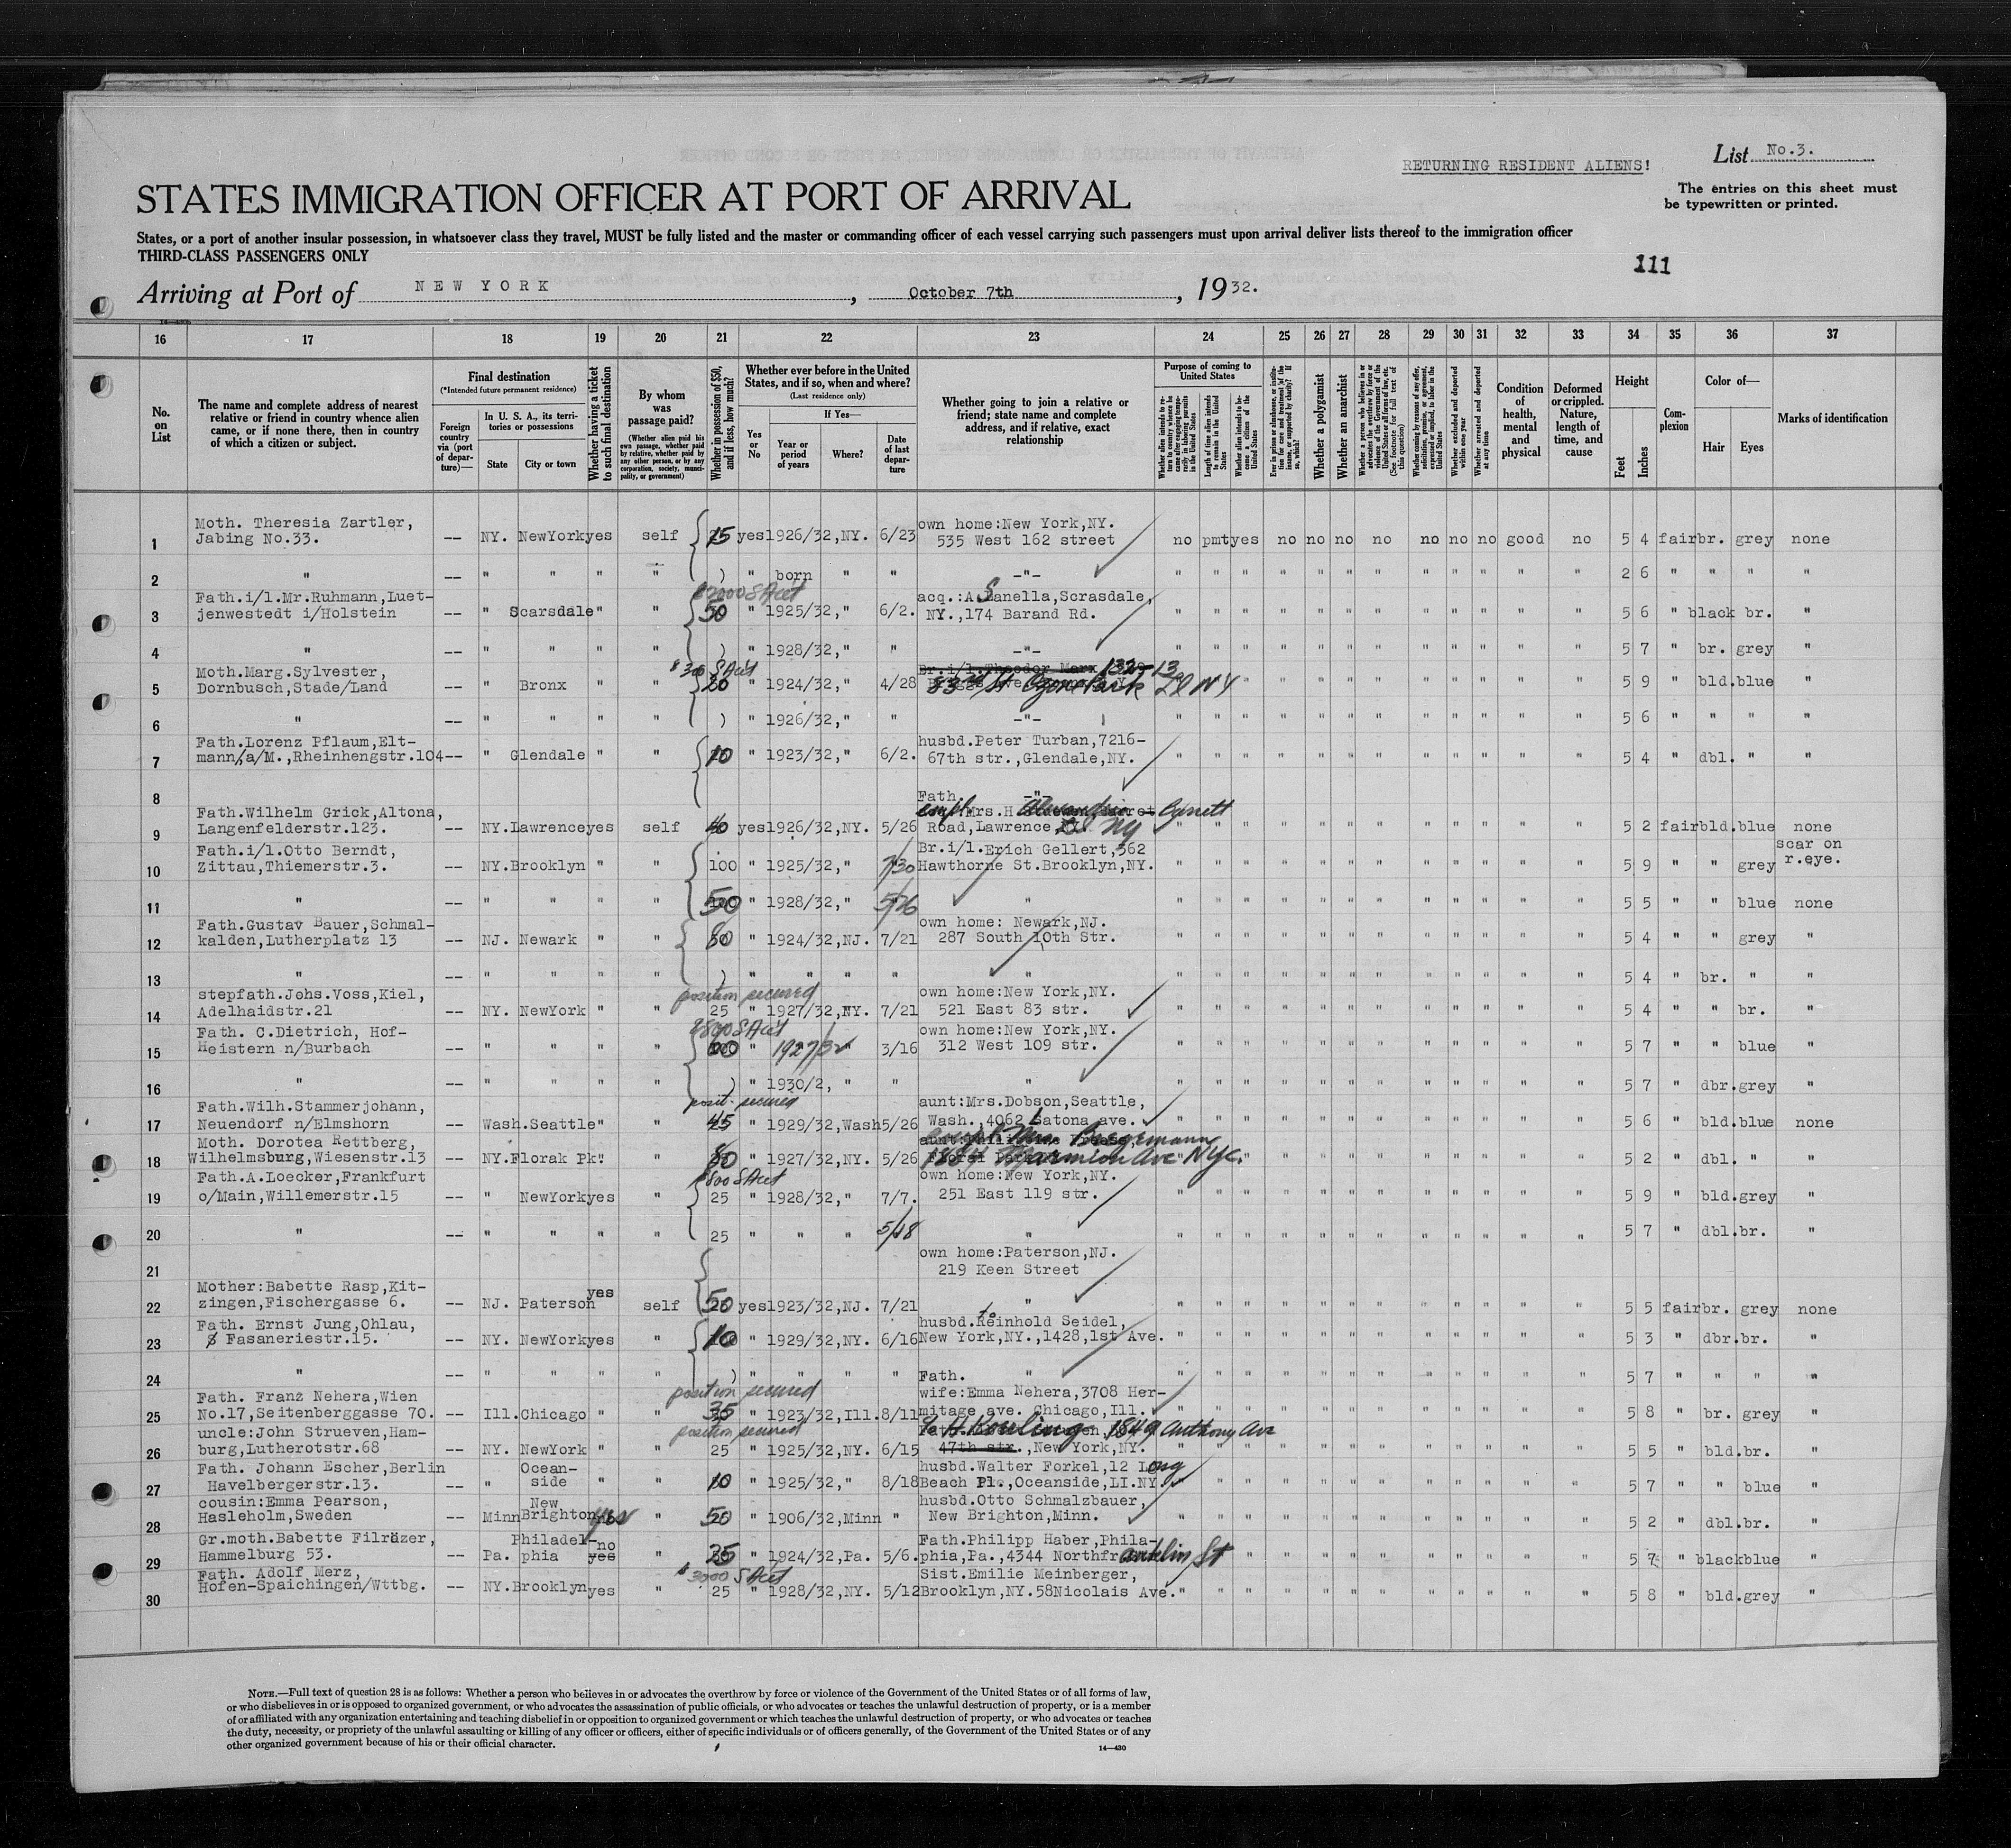 RETURNING RESIDENT ALIENS!
List No.3.
The entries on this sheet must
be typewritten or printed.
STATES IMMIGRATION OFFICER AT PORT OF ARRIVAL
States, or a port of another insular possession, in whatsoever class they travel, MUST be fully listed and the master or commanding officer of each vessel carrying such passengers must upon arrival deliver lists thereof to the immigration officer
THIRD-CLASS PASSENGERS ONLY
111
Arriving at Port of NEW YORK, October 7th, 1932.
16 17 18 19 20 21 22 23 24 25 26 27 28 29 30 31 32 33 34 35 36 37
No. on List
The name and complete address of nearest relative or friend in country whence alien came, or if none there, then in country of which a citizen or subject.
Final destination
(*Intended future permanent residence)
Foreign country via (port of departure)—
In U. S. A., its territories or possessions
State
City or town
Whether having a ticket to such final destination
By whom was passage paid?
(Whether alien paid his own passage, whether paid by relative, whether paid by any other person, or by any corporation, society, municipality, or government)
Whether in possession of $50, and if less, how much?
Whether ever before in the United States, and if so, when and where?
(Last residence only)
Yes or No
If Yes—
Year or period of years
Where?
Date of last departure
Whether going to join a relative or friend; state name and complete address, and if relative, exact relationship
Purpose of coming to United States
Length of time alien intends to remain in the United States
Whether alien intends to become a citizen of the United States
Whether a polygamist
Whether an anarchist
Whether excluded and deported within one year
Whether arrested and deported at any time
Condition of health, mental and physical
Deformed or crippled. Nature, length of time, and cause
Height
Feet
Inches
Complexion
Color of—
Hair
Eyes
Marks of identification
Moth. Theresia Zartler, own home:New York,NY.
1 Jabing No.33. -- NY. NewYork yes self 15 yes 1926/32,NY. 6/23 535 West 162 street no pmt yes no no no no no no no good no 5 4 fair br. grey none
2 " -- " " " " ) " born " " -"- " " " " " " " " " " " " 2 6 " " " "
$2000 S Acct
Fath.i/l.Mr.Ruhmann,Luet- acq.:A.Sanella,Scrasdale,
3 jenwestedt i/Holstein -- " Scarsdale " " 50 " 1925/32," 6/2. NY.,174 Barand Rd. " " " " " " " " " " " " 5 6 " black br. "
4 " -- " " " " ) " 1928/32," " -"- " " " " " " " " " " " " 5 7 " br. grey "
$30 S Acct
Moth.Marg.Sylvester, Br.i/l.Theodor Marx 13220
5 Dornbusch,Stade/Land -- " Bronx " " 20 " 1924/32," 4/28 83rd St Ozone Park LI NY " " " " " " " " " " " 5 9 " bld. blue "
6 " -- " " " " ) " 1926/32," " -"- " " " " " " " " " " " " 5 6 " " " "
Fath.Lorenz Pflaum,Elt- husbd.Peter Turban,7216-
7 mann,a/M.,Rheinhengstr.104 -- " Glendale " " 10 " 1923/32," 6/2. 67th str.,Glendale,NY. " " " " " " " " " " " " 5 4 " dbl. " "
8 -"-
Fath.
Fath.Wilhelm Grick,Altona, empl. Mrs.H Alexandrie Garrett
9 Langenfelderstr.123. -- NY. Lawrence yes self 40 yes 1926/32,NY. 5/26 Road,Lawrence NY " " " " " " " " " " " " 5 2 fair bld. blue none
Fath.i/l.Otto Berndt, Br.i/l.Erich Gellert,362 scar on
10 Zittau,Thiemerstr.3. -- NY. Brooklyn " " 100 " 1925/32," 7/30 Hawthorne St.Brooklyn,NY. " " " " " " " " " " " " 5 9 " " grey r.eye.
11 " -- " " " " 50 " 1928/32," 5/26 " " " " " " " " " " " " " 5 5 " " blue none
Fath.Gustav Bauer,Schmal- own home: Newark,NJ.
12 kalden,Lutherplatz 13 -- NJ. Newark " " 80 " 1924/32,NJ. 7/21 287 South 10th Str. " " " " " " " " " " " " 5 4 " " grey "
13 " -- " " " " ) " " " " " " " " " " " " " " " " " 5 4 " br. " "
position secured
stepfath.Johs.Voss,Kiel, own home:New York,NY.
14 Adelhaidstr.21 -- NY. NewYork " " 25 " 1927/32,NY. 7/21 521 East 83 str. " " " " " " " " " " " " 5 4 " " br. "
$800 S Acct
Fath. C.Dietrich, Hof- own home:New York,NY.
15 Heistern n/Burbach -- " " " " " 1927/32 " 3/16 312 West 109 str. " " " " " " " " " " " " 5 7 " " blue "
16 " -- " " " " ) " 1930/2, " " " " " " " " " " " " " " " 5 7 " dbr. grey "
posit. secured
Fath.Wilh.Stammerjohann, aunt:Mrs.Dobson,Seattle,
17 Neuendorf n/Elmshorn -- Wash. Seattle " " 45 " 1929/32,Wash 5/26 Wash.,4062 Latona ave. " " " " " " " " " " " " 5 6 " bld. blue none
Moth. Dorotea Rettberg, Mrs. Bergemann
18 Wilhelmsburg,Wiesenstr.13 -- NY. Florak Pk. " " 80 " 1927/32,NY. 5/26 1884 Marmion Ave NYC. " " " " " " " " " " " 5 2 " dbl. " "
$800 S Acct
Fath.A.Loecker,Frankfurt own home:New York,NY.
19 o/Main,Willemerstr.15 -- " NewYork yes " 25 " 1928/32," 7/7. 251 East 119 str. " " " " " " " " " " " " 5 9 " bld. grey "
20 " -- " " " " 25 " " " 5/18 " " " " " " " " " " " " " 5 7 " dbl. br. "
own home:Paterson,NJ.
21 219 Keen Street
Mother:Babette Rasp,Kit-
22 zingen,Fischergasse 6. -- NJ. Paterson yes self 50 yes 1923/32,NJ. 7/21 " " " " " " " " " " " " " 5 5 fair br. grey none
Fath. Ernst Jung,Ohlau, husbd.Reinhold Seidel, to
23 Fasaneriestr.15. -- NY. NewYork yes " 10 " 1929/32,NY. 6/16 New York,NY.,1428,1st Ave. " " " " " " " " " " " " 5 3 " dbr. br. "
24 " -- " " " " ) " " " " Fath. " " " " " " " " " " " " " 5 7 " " " "
position secured
Fath. Franz Nehera,Wien wife:Emma Nehera,3708 Her-
25 No.17,Seitenberggasse 70. -- Ill. Chicago " " 35 " 1923/32,Ill. 8/11 mitage ave. Chicago,Ill. " " " " " " " " " " " " 5 8 " br. grey "
position secured
uncle:John Strueven,Ham- H Kowling 1849 Anthony Ave
26 burg,Lutherotstr.68 -- NY. NewYork " " 25 " 1925/32,NY. 6/15 47th str.,New York,NY. " " " " " " " " " " " " 5 5 " bld. br. "
Fath. Johann Escher,Berlin Ocean- husbd.Walter Forkel,12 Long
27 Havelbergerstr.13. -- " side " " 10 " 1925/32," 8/18 Beach Pl.,Oceanside,LI.NY. " " " " " " " " " " " " 5 7 " " blue "
cousin:Emma Pearson, New husbd.Otto Schmalzbauer,
28 Hasleholm,Sweden -- Minn Brighton yes " 50 " 1906/32,Minn " New Brighton,Minn. " " " " " " " " " " " " 5 2 " dbl. br. "
Gr.moth.Babette Filräzer, Philadel- no Fath.Philipp Haber,Phila-
29 Hammelburg 53. -- Pa. phia yes " 35 " 1924/32,Pa. 5/6. phia,Pa.,4344 Northfranklin St " " " " " " " " " " " 5 7 " black blue "
$3000 S Acct
Fath. Adolf Merz, Sist.Emilie Meinberger,
30 Hofen-Spaichingen/Wttbg. -- NY. Brooklyn yes " 25 " 1928/32,NY. 5/12 Brooklyn,NY.58Nicolais Ave. " " " " " " " " " " " " 5 8 " bld. grey "
NOTE.—Full text of question 28 is as follows: Whether a person who believes in or advocates the overthrow by force or violence of the Government of the United States or of all forms of law,
or who disbelieves in or is opposed to organized government, or who advocates the assassination of public officials, or who advocates or teaches the unlawful destruction of property, or is a member
of or affiliated with any organization entertaining and teaching disbelief in or opposition to organized government or which teaches the unlawful destruction of property, or who advocates or teaches
the duty, necessity, or propriety of the unlawful assaulting or killing of any officer or officers, either of specific individuals or of officers generally, of the Government of the United States or of any
other organized government because of his or their official character.
14—430